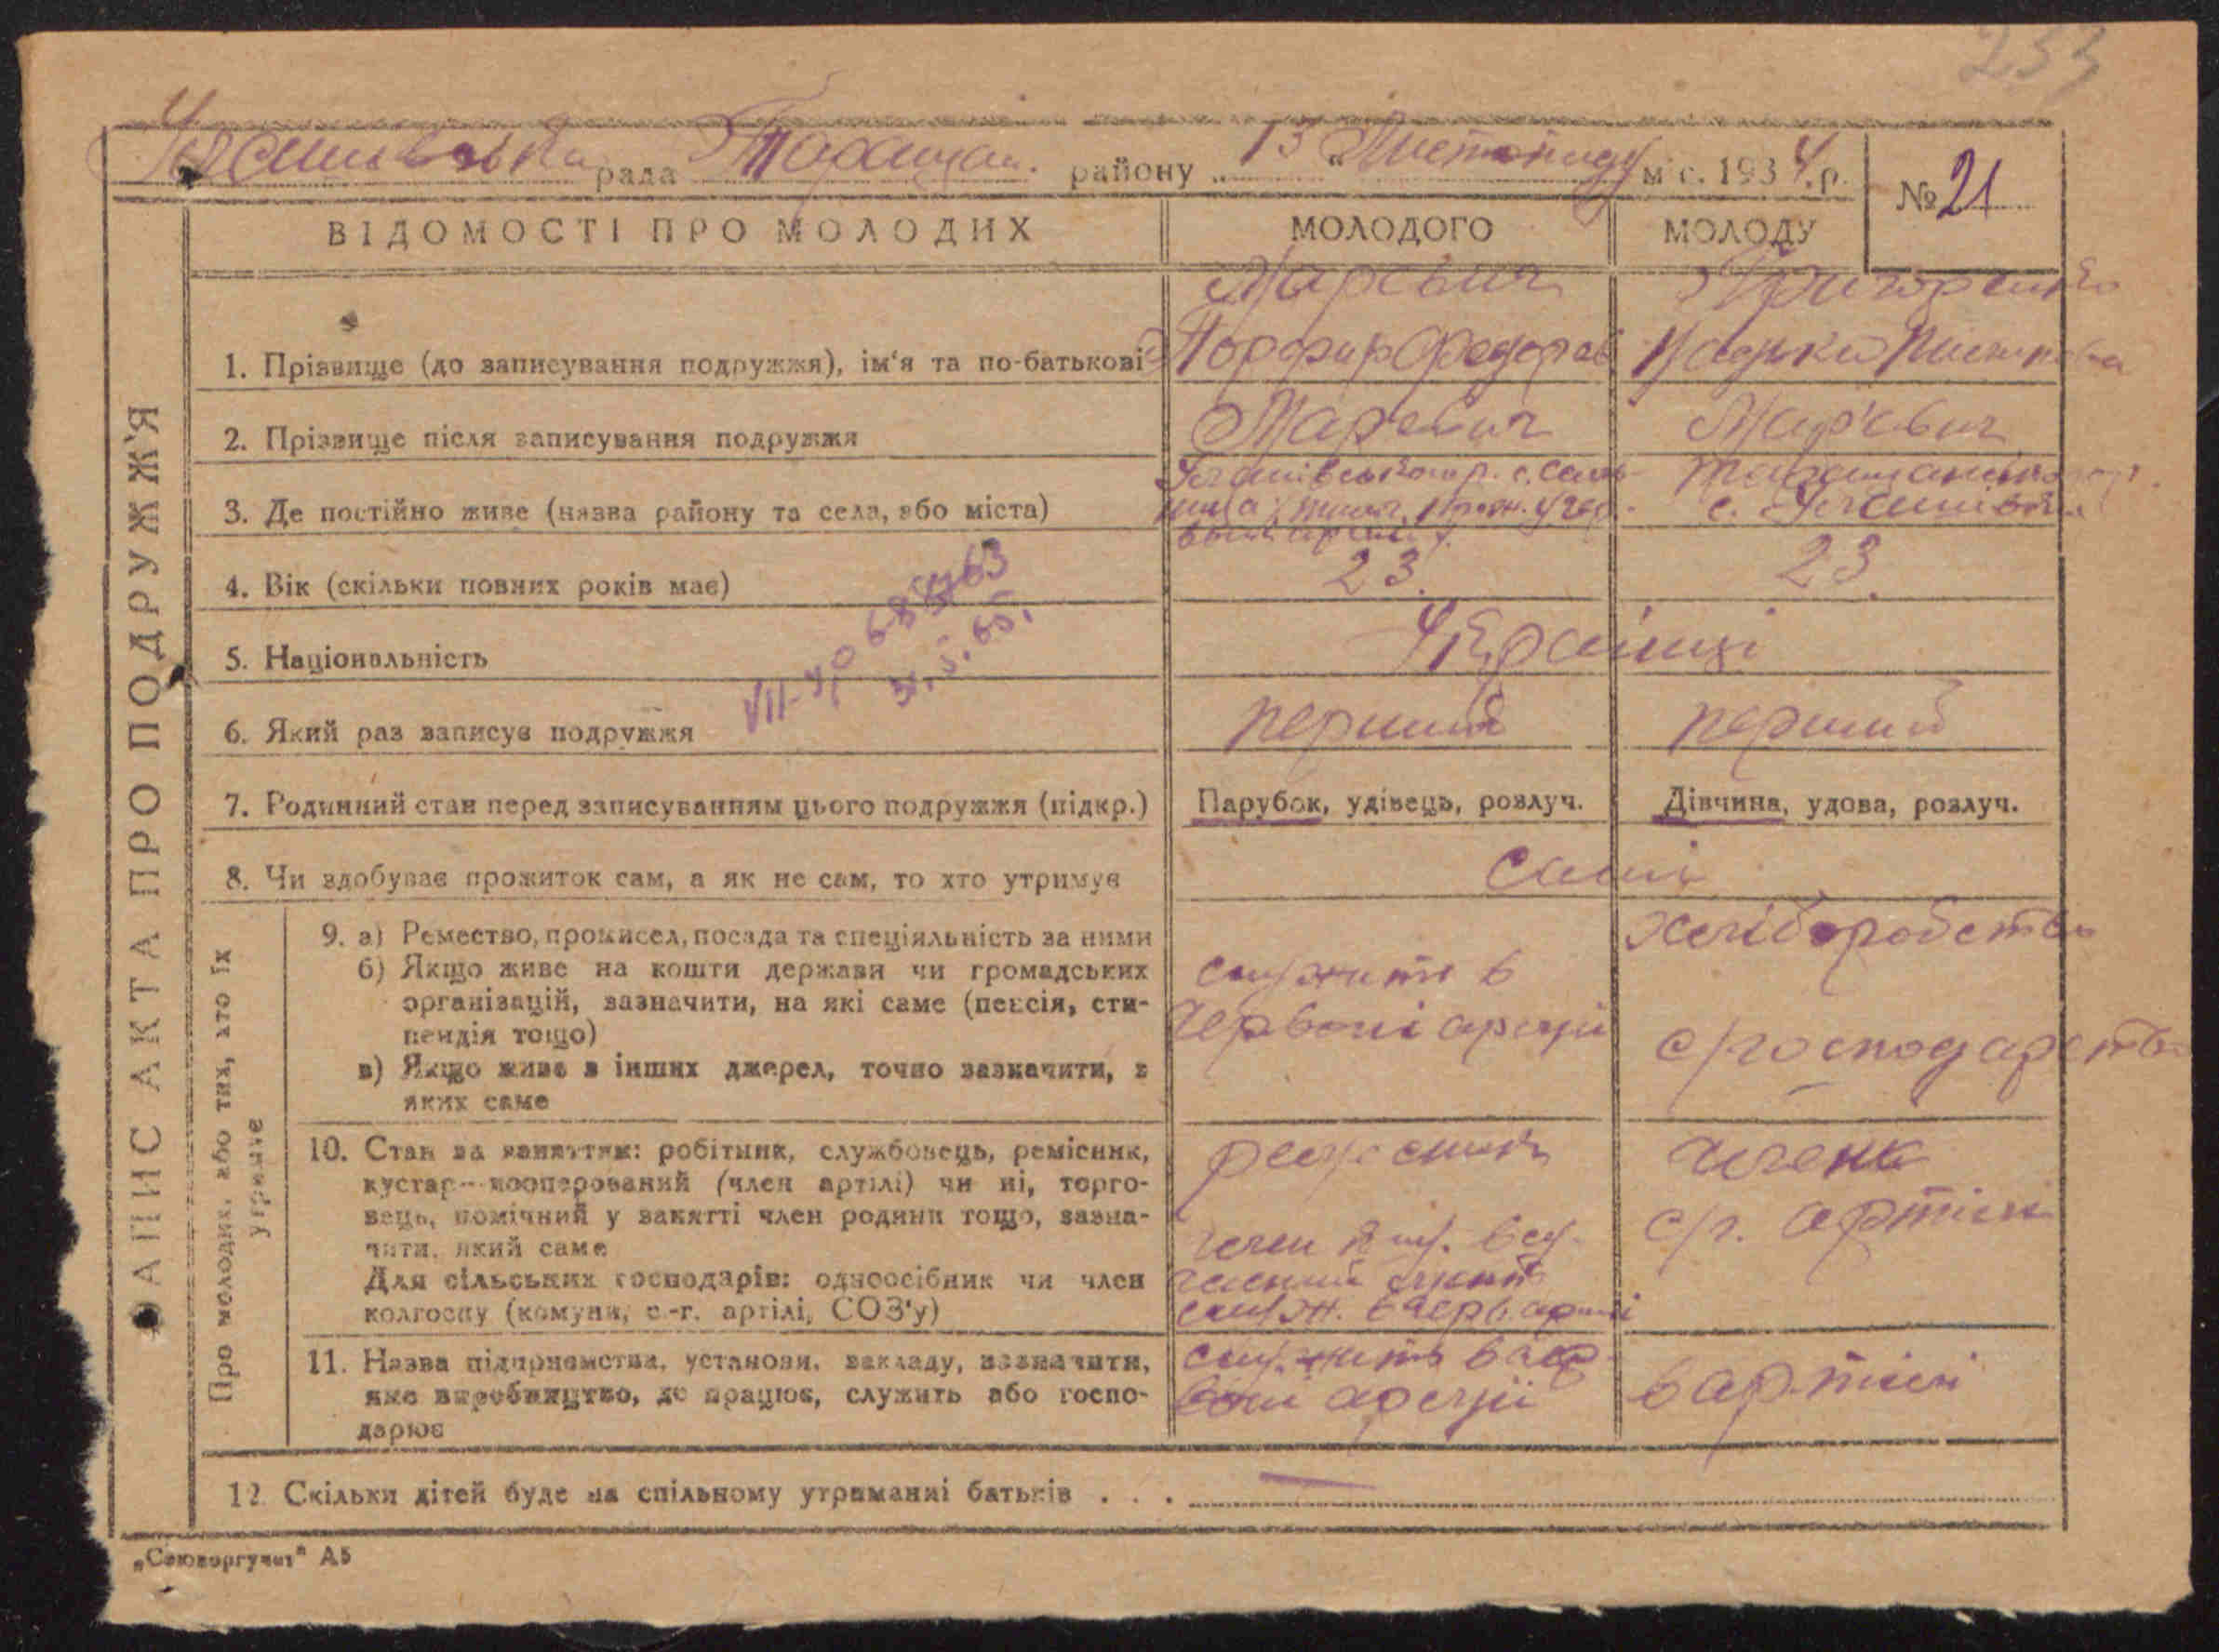 253
рада Таращан. району „13“ Листопаду міс. 1934 р.
№ 21
ВІДОМОСТІ ПРО МОЛОДИХ
МОЛОДОГО
МОЛОДУ
ЗАПИС АКТА ПРО ПОДРУЖЖ'Я
1. Прізвище (до записування подружжя), ім'я та по-батькові
Марєвич
Порфир Федоров
Григоренко
2. Прізвище після записування подружжя
Марєвич
Марєвич
3. Де постійно живе (назва району та села, або міста)
с.
4. Вік (скільки повних років має)
23.
23.
5. Національність
Українці
VII-УЮ
31.5.65.
6. Який раз записує подружжя
перший
перший
7. Родинний стан перед записуванням цього подружжя (підкр.)
Парубок, удівець, розлуч.
Дівчина, удова, розлуч.
8. Чи здобуває прожиток сам, а як не сам, то хто утримує
самі
Про молодих, або тих, хто їх
утримує
9. а) Ремество, промисел, посада та спеціяльність за ними
б) Якщо живе на кошти держави чи громадських
організацій, зазначити, на які саме (пенсія, сти-
пендія тощо)
в) Якщо живе з інших джерел, точно зазначити, з
яких саме
служить в
Червоні армії
хліборобство
с/господарство
10. Стан за заняттям: робітник, службовець, ремісник,
кустар—кооперований (член артілі) чи ні, торго-
вець, помічний у занятті член родини тощо, зазна-
чити, який саме
Для сільських господарів: одноосібник чи член
колгоспу (комуни, с.-г. артілі, СОЗ'у)
служ. в черв. армії
членка
с/г. артілі
11. Назва підприємства, установи, закладу, зазначити,
яке виробництво, де працює, служить або госпо-
дарює
служить в чер-
воні армії
в артілі
12. Скільки дітей буде на спільному утриманні батьків . . .
—
„Союзоргучет“ А5